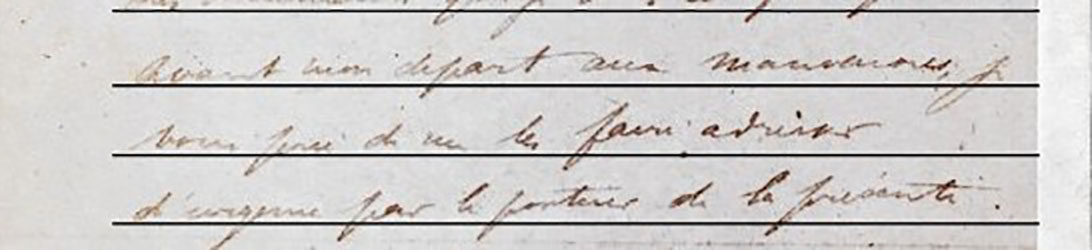 avant mon départ aux manoeuvres, je
vous prie de me les faire adresser
d'urgence par le porteur de la présente.